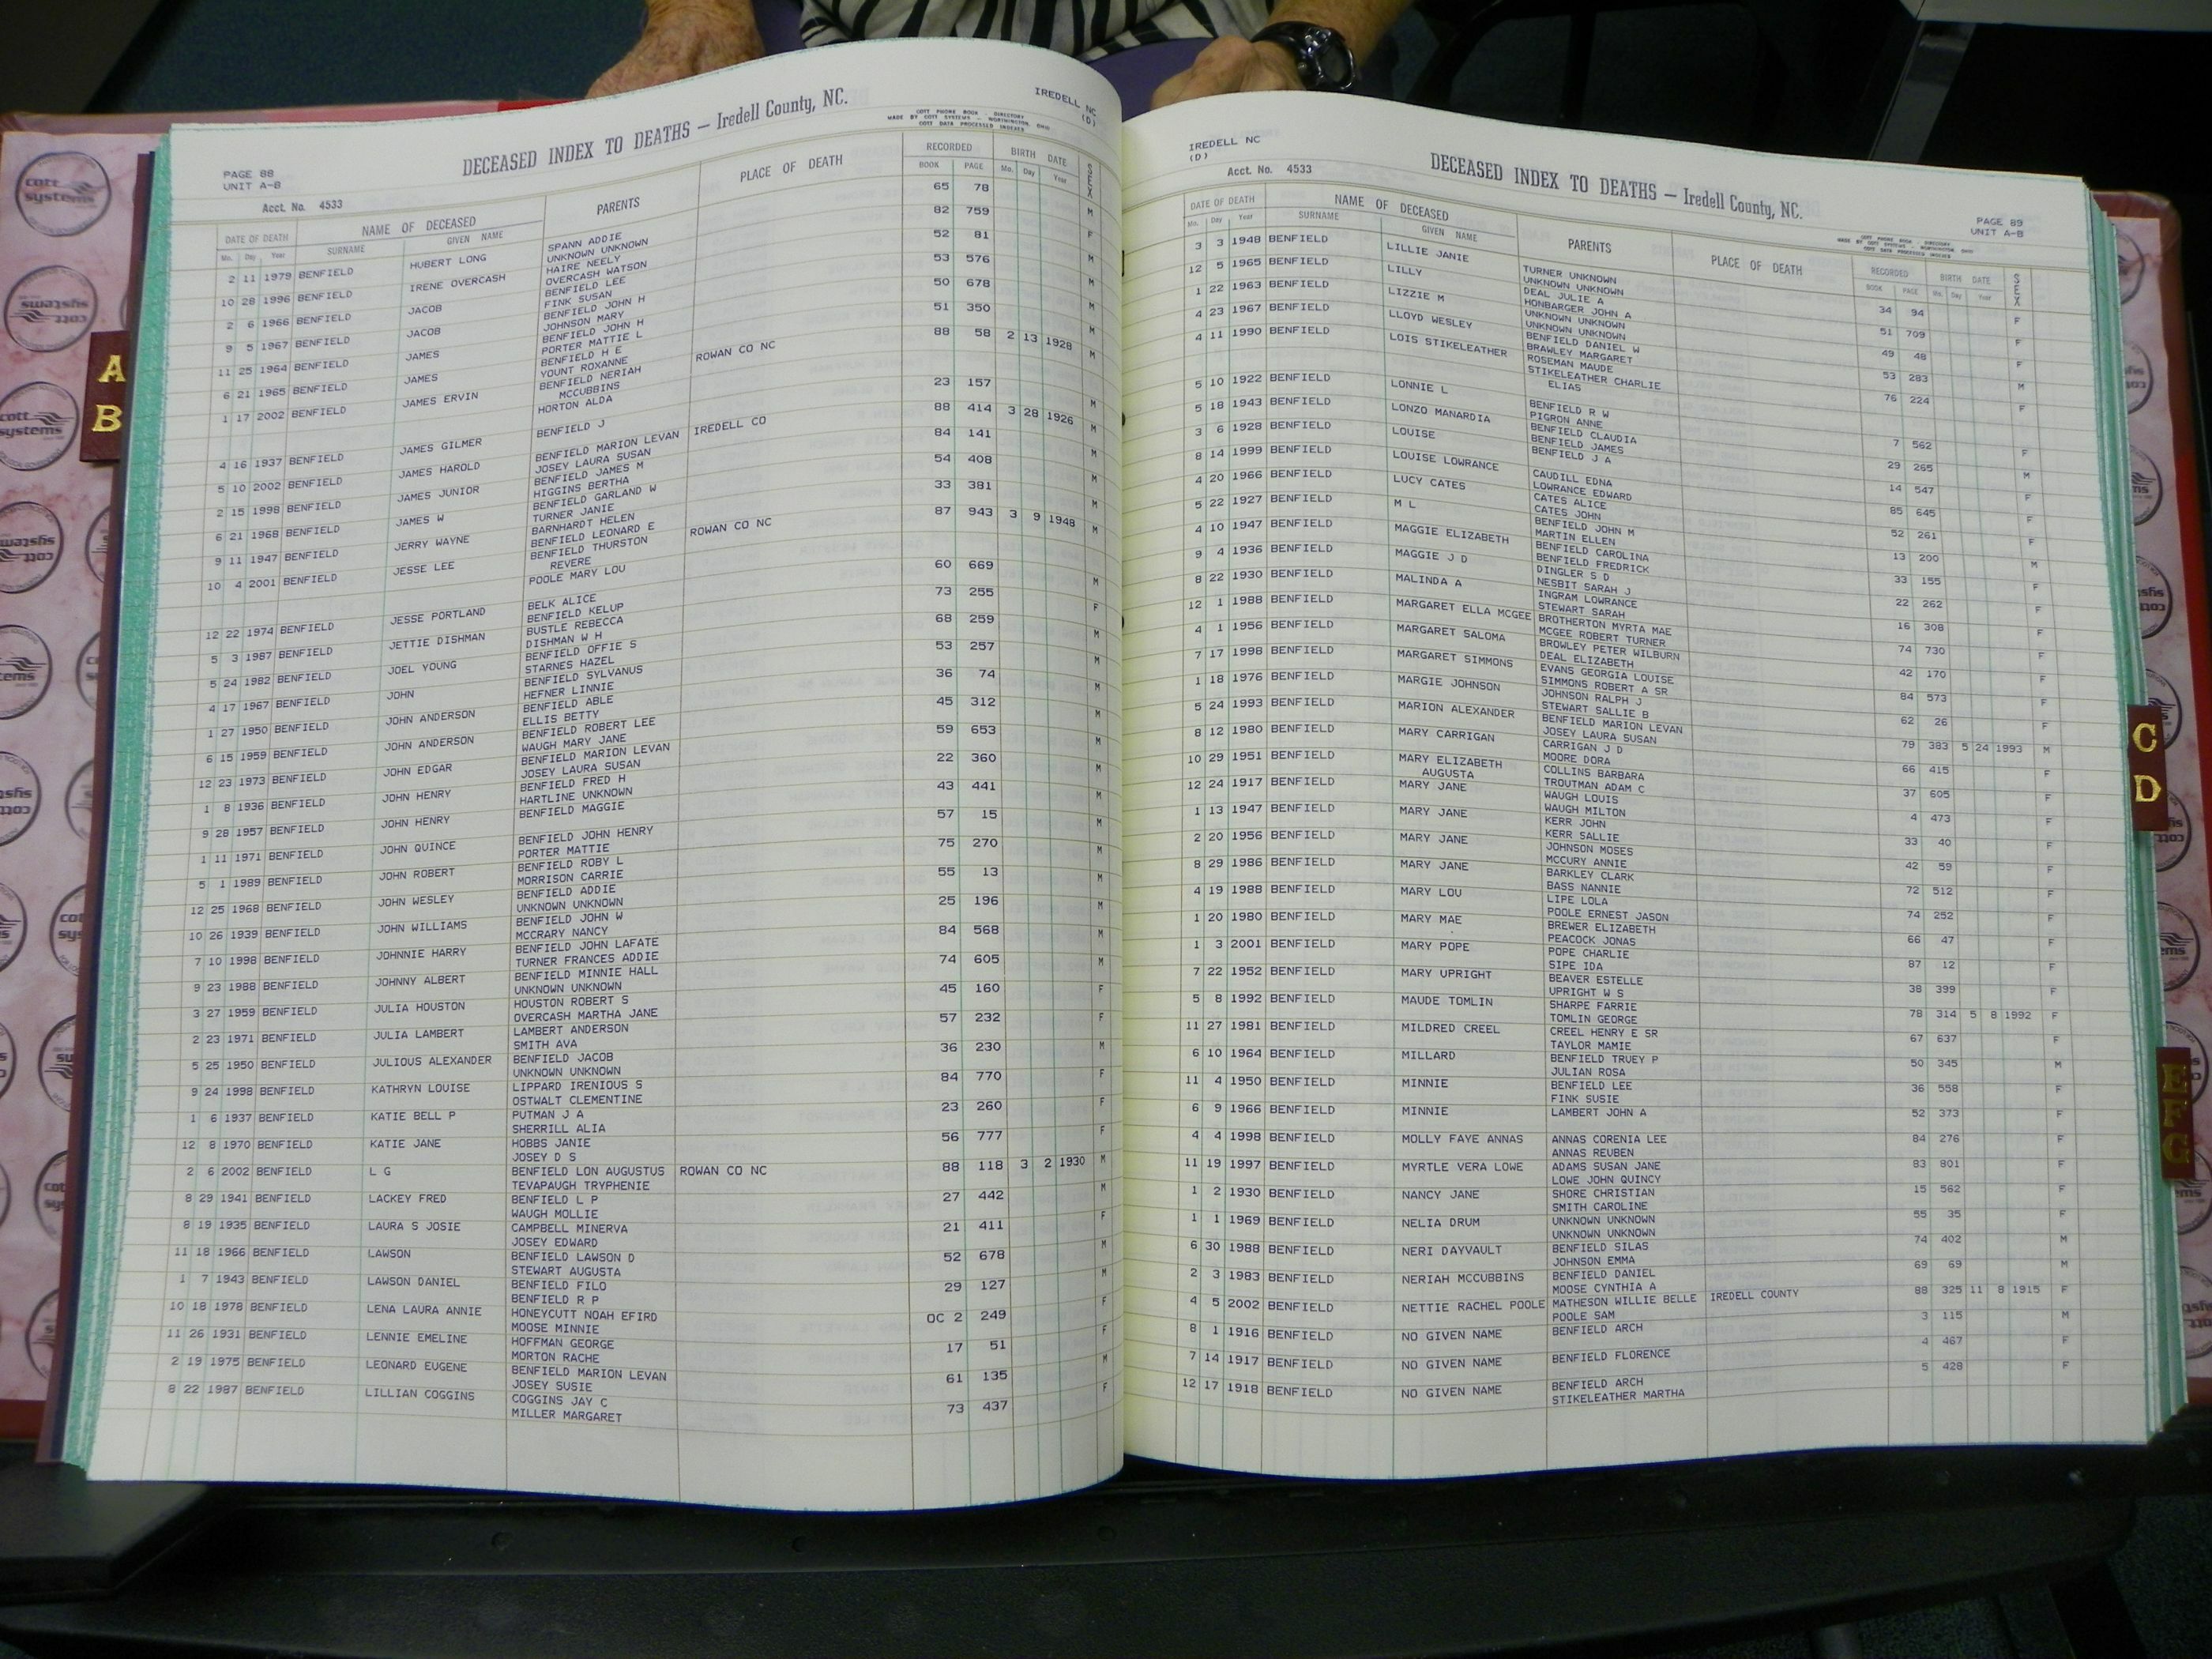 PAGE 88
UNIT A-B
DECEASED INDEX TO DEATHS — Iredell County, NC.
IREDELL NC
(D)
COTT PHONE BOOK - DIRECTORY
MADE BY COTT SYSTEMS - WORTHINGTON, OHIO
COTT DATA PROCESSED INDEXES
Acct. No. 4533
DATE OF DEATH NAME OF DECEASED PARENTS PLACE OF DEATH RECORDED BIRTH DATE SEX
Mo. Day Year SURNAME GIVEN NAME BOOK PAGE Mo. Day Year
2 11 1979 BENFIELD HUBERT LONG SPANN ADDIE 65 78 M
UNKNOWN UNKNOWN
10 28 1996 BENFIELD IRENE OVERCASH HAIRE NEELY 82 759 F
OVERCASH WATSON
2 6 1966 BENFIELD JACOB BENFIELD LEE 52 81 M
FINK SUSAN
9 5 1967 BENFIELD JACOB BENFIELD JOHN H 53 576 M
JOHNSON MARY
11 25 1964 BENFIELD JAMES BENFIELD JOHN H 50 678 M
PORTER MATTIE L
6 21 1965 BENFIELD JAMES BENFIELD H E 51 350 M
YOUNT ROXANNE
1 17 2002 BENFIELD JAMES ERVIN BENFIELD NERIAH ROWAN CO NC 88 58 2 13 1928 M
MCCUBBINS
HORTON ALDA
4 16 1937 BENFIELD JAMES GILMER BENFIELD J 23 157 M
5 10 2002 BENFIELD JAMES HAROLD BENFIELD MARION LEVAN IREDELL CO 88 414 3 28 1926 M
JOSEY LAURA SUSAN
2 15 1998 BENFIELD JAMES JUNIOR BENFIELD JAMES M 84 141 M
HIGGINS BERTHA
6 21 1968 BENFIELD JAMES W BENFIELD GARLAND W 54 408 M
TURNER JANIE
9 11 1947 BENFIELD JERRY WAYNE BARNHARDT HELEN 33 381 M
BENFIELD LEONARD E
10 4 2001 BENFIELD JESSE LEE BENFIELD THURSTON ROWAN CO NC 87 943 3 9 1948 M
REVERE
POOLE MARY LOU
12 22 1974 BENFIELD JESSE PORTLAND BELK ALICE 60 669 M
BENFIELD KELUP
5 3 1987 BENFIELD JETTIE DISHMAN BUSTLE REBECCA 73 255 F
DISHMAN W H
5 24 1982 BENFIELD JOEL YOUNG BENFIELD OFFIE S 68 259 M
STARNES HAZEL
4 17 1967 BENFIELD JOHN BENFIELD SYLVANUS 53 257 M
HEFNER LINNIE
1 27 1950 BENFIELD JOHN ANDERSON BENFIELD ABLE 36 74 M
ELLIS BETTY
6 15 1959 BENFIELD JOHN ANDERSON BENFIELD ROBERT LEE 45 312 M
WAUGH MARY JANE
12 23 1973 BENFIELD JOHN EDGAR BENFIELD MARION LEVAN 59 653 M
JOSEY LAURA SUSAN
1 8 1936 BENFIELD JOHN HENRY BENFIELD FRED H 22 360 M
HARTLINE UNKNOWN
9 28 1957 BENFIELD JOHN HENRY BENFIELD MAGGIE 43 441 M
1 11 1971 BENFIELD JOHN QUINCE BENFIELD JOHN HENRY 57 15 M
PORTER MATTIE
5 1 1989 BENFIELD JOHN ROBERT BENFIELD ROBY L 75 270 M
MORRISON CARRIE
12 25 1968 BENFIELD JOHN WESLEY BENFIELD ADDIE 55 13 M
UNKNOWN UNKNOWN
10 26 1939 BENFIELD JOHN WILLIAMS BENFIELD JOHN W 25 196 M
MCCRARY NANCY
7 10 1998 BENFIELD JOHNNIE HARRY BENFIELD JOHN LAFATE 84 568 M
TURNER FRANCES ADDIE
9 23 1988 BENFIELD JOHNNY ALBERT BENFIELD MINNIE HALL 74 605 M
UNKNOWN UNKNOWN
3 27 1959 BENFIELD JULIA HOUSTON HOUSTON ROBERT S 45 160 F
OVERCASH MARTHA JANE
2 23 1971 BENFIELD JULIA LAMBERT LAMBERT ANDERSON 57 232 F
SMITH AVA
5 25 1950 BENFIELD JULIOUS ALEXANDER BENFIELD JACOB 36 230 M
UNKNOWN UNKNOWN
9 24 1998 BENFIELD KATHRYN LOUISE LIPPARD IRENIOUS S 84 770 F
OSTWALT CLEMENTINE
1 6 1937 BENFIELD KATIE BELL P PUTMAN J A 23 260 F
SHERRILL ALIA
12 8 1970 BENFIELD KATIE JANE HOBBS JANIE 56 777 F
JOSEY D S
2 6 2002 BENFIELD L G BENFIELD LON AUGUSTUS ROWAN CO NC 88 118 3 2 1930 M
TEVAPAUGH TRYPHENIE
8 29 1941 BENFIELD LACKEY FRED BENFIELD L P 27 442 M
WAUGH MOLLIE
8 19 1935 BENFIELD LAURA S JOSIE CAMPBELL MINERVA 21 411 F
JOSEY EDWARD
11 18 1966 BENFIELD LAWSON BENFIELD LAWSON D 52 678 M
STEWART AUGUSTA
1 7 1943 BENFIELD LAWSON DANIEL BENFIELD FILO 29 127 M
BENFIELD R P
10 18 1978 BENFIELD LENA LAURA ANNIE HONEYCUTT NOAH EFIRD OC 2 249 F
MOOSE MINNIE
11 26 1931 BENFIELD LENNIE EMELINE HOFFMAN GEORGE 17 51 F
MORTON RACHE
2 19 1975 BENFIELD LEONARD EUGENE BENFIELD MARION LEVAN 61 135 M
JOSEY SUSIE
8 22 1987 BENFIELD LILLIAN COGGINS COGGINS JAY C 73 437 F
MILLER MARGARET
IREDELL NC
(D)
DECEASED INDEX TO DEATHS — Iredell County, NC.
PAGE 89
UNIT A-B
Acct. No. 4533
COTT PHONE BOOK - DIRECTORY
MADE BY COTT SYSTEMS - WORTHINGTON, OHIO
COTT DATA PROCESSED INDEXES
DATE OF DEATH NAME OF DECEASED PARENTS PLACE OF DEATH RECORDED BIRTH DATE SEX
Mo. Day Year SURNAME GIVEN NAME BOOK PAGE Mo. Day Year
3 3 1948 BENFIELD LILLIE JANIE TURNER UNKNOWN 34 94 F
UNKNOWN UNKNOWN
12 5 1965 BENFIELD LILLY DEAL JULIE A 51 709 F
HONBARGER JOHN A
1 22 1963 BENFIELD LIZZIE M UNKNOWN UNKNOWN 49 48 F
UNKNOWN UNKNOWN
4 23 1967 BENFIELD LLOYD WESLEY BENFIELD DANIEL W 53 283 M
BRAWLEY MARGARET
4 11 1990 BENFIELD LOIS STIKELEATHER ROSEMAN MAUDE 76 224 F
STIKELEATHER CHARLIE
ELIAS
5 10 1922 BENFIELD LONNIE L BENFIELD R W 7 562 F
PIGRON ANNE
5 18 1943 BENFIELD LONZO MANARDIA BENFIELD CLAUDIA 29 265 M
BENFIELD JAMES
3 6 1928 BENFIELD LOUISE BENFIELD J A 14 547 F
8 14 1999 BENFIELD LOUISE LOWRANCE CAUDILL EDNA 85 645 F
LOWRANCE EDWARD
4 20 1966 BENFIELD LUCY CATES CATES ALICE 52 261 F
CATES JOHN
5 22 1927 BENFIELD M L BENFIELD JOHN M 13 200 M
MARTIN ELLEN
4 10 1947 BENFIELD MAGGIE ELIZABETH BENFIELD CAROLINA 33 155 F
BENFIELD FREDRICK
9 4 1936 BENFIELD MAGGIE J D DINGLER S D 22 262 F
NESBIT SARAH J
8 22 1930 BENFIELD MALINDA A INGRAM LOWRANCE 16 308 F
STEWART SARAH
12 1 1988 BENFIELD MARGARET ELLA MCGEE BROTHERTON MYRTA MAE 74 730 F
MCGEE ROBERT TURNER
4 1 1956 BENFIELD MARGARET SALOMA BROWLEY PETER WILBURN 42 170 F
DEAL ELIZABETH
7 17 1998 BENFIELD MARGARET SIMMONS EVANS GEORGIA LOUISE 84 573 F
SIMMONS ROBERT A SR
1 18 1976 BENFIELD MARGIE JOHNSON JOHNSON RALPH J 62 26 F
STEWART SALLIE B
5 24 1993 BENFIELD MARION ALEXANDER BENFIELD MARION LEVAN 79 383 5 24 1993 M
JOSEY LAURA SUSAN
8 12 1980 BENFIELD MARY CARRIGAN CARRIGAN J D 66 415 F
MOORE DORA
10 29 1951 BENFIELD MARY ELIZABETH COLLINS BARBARA 37 605 F
AUGUSTA TROUTMAN ADAM C
12 24 1917 BENFIELD MARY JANE WAUGH LOUIS 4 473 F
WAUGH MILTON
1 13 1947 BENFIELD MARY JANE KERR JOHN 33 40 F
KERR SALLIE
2 20 1956 BENFIELD MARY JANE JOHNSON MOSES 42 59 F
MCCURY ANNIE
8 29 1986 BENFIELD MARY JANE BARKLEY CLARK 72 512 F
BASS NANNIE
4 19 1988 BENFIELD MARY LOU LIPE LOLA 74 252 F
POOLE ERNEST JASON
1 20 1980 BENFIELD MARY MAE BREWER ELIZABETH 66 47 F
PEACOCK JONAS
1 3 2001 BENFIELD MARY POPE POPE CHARLIE 87 12 F
SIPE IDA
7 22 1952 BENFIELD MARY UPRIGHT BEAVER ESTELLE 38 399 F
UPRIGHT W S
5 8 1992 BENFIELD MAUDE TOMLIN SHARPE FARRIE 78 314 5 8 1992 F
TOMLIN GEORGE
11 27 1981 BENFIELD MILDRED CREEL CREEL HENRY E SR 67 637 F
TAYLOR MAMIE
6 10 1964 BENFIELD MILLARD BENFIELD TRUEY P 50 345 M
JULIAN ROSA
11 4 1950 BENFIELD MINNIE BENFIELD LEE 36 558 F
FINK SUSIE
6 9 1966 BENFIELD MINNIE LAMBERT JOHN A 52 373 F
4 4 1998 BENFIELD MOLLY FAYE ANNAS ANNAS CORENIA LEE 84 276 F
ANNAS REUBEN
11 19 1997 BENFIELD MYRTLE VERA LOWE ADAMS SUSAN JANE 83 801 F
LOWE JOHN QUINCY
1 2 1930 BENFIELD NANCY JANE SHORE CHRISTIAN 15 562 F
SMITH CAROLINE
1 1 1969 BENFIELD NELIA DRUM UNKNOWN UNKNOWN 55 35 F
UNKNOWN UNKNOWN
6 30 1988 BENFIELD NERI DAYVAULT BENFIELD SILAS 74 402 M
JOHNSON EMMA
2 3 1983 BENFIELD NERIAH MCCUBBINS BENFIELD DANIEL 69 69 M
MOOSE CYNTHIA A
4 5 2002 BENFIELD NETTIE RACHEL POOLE MATHESON WILLIE BELLE IREDELL COUNTY 88 325 11 8 1915 F
POOLE SAM
8 1 1916 BENFIELD NO GIVEN NAME BENFIELD ARCH 3 115 M
7 14 1917 BENFIELD NO GIVEN NAME BENFIELD FLORENCE 4 467 F
12 17 1918 BENFIELD NO GIVEN NAME BENFIELD ARCH 5 428 F
STIKELEATHER MARTHA
A
B
C
D
E
F
G
cott
systems